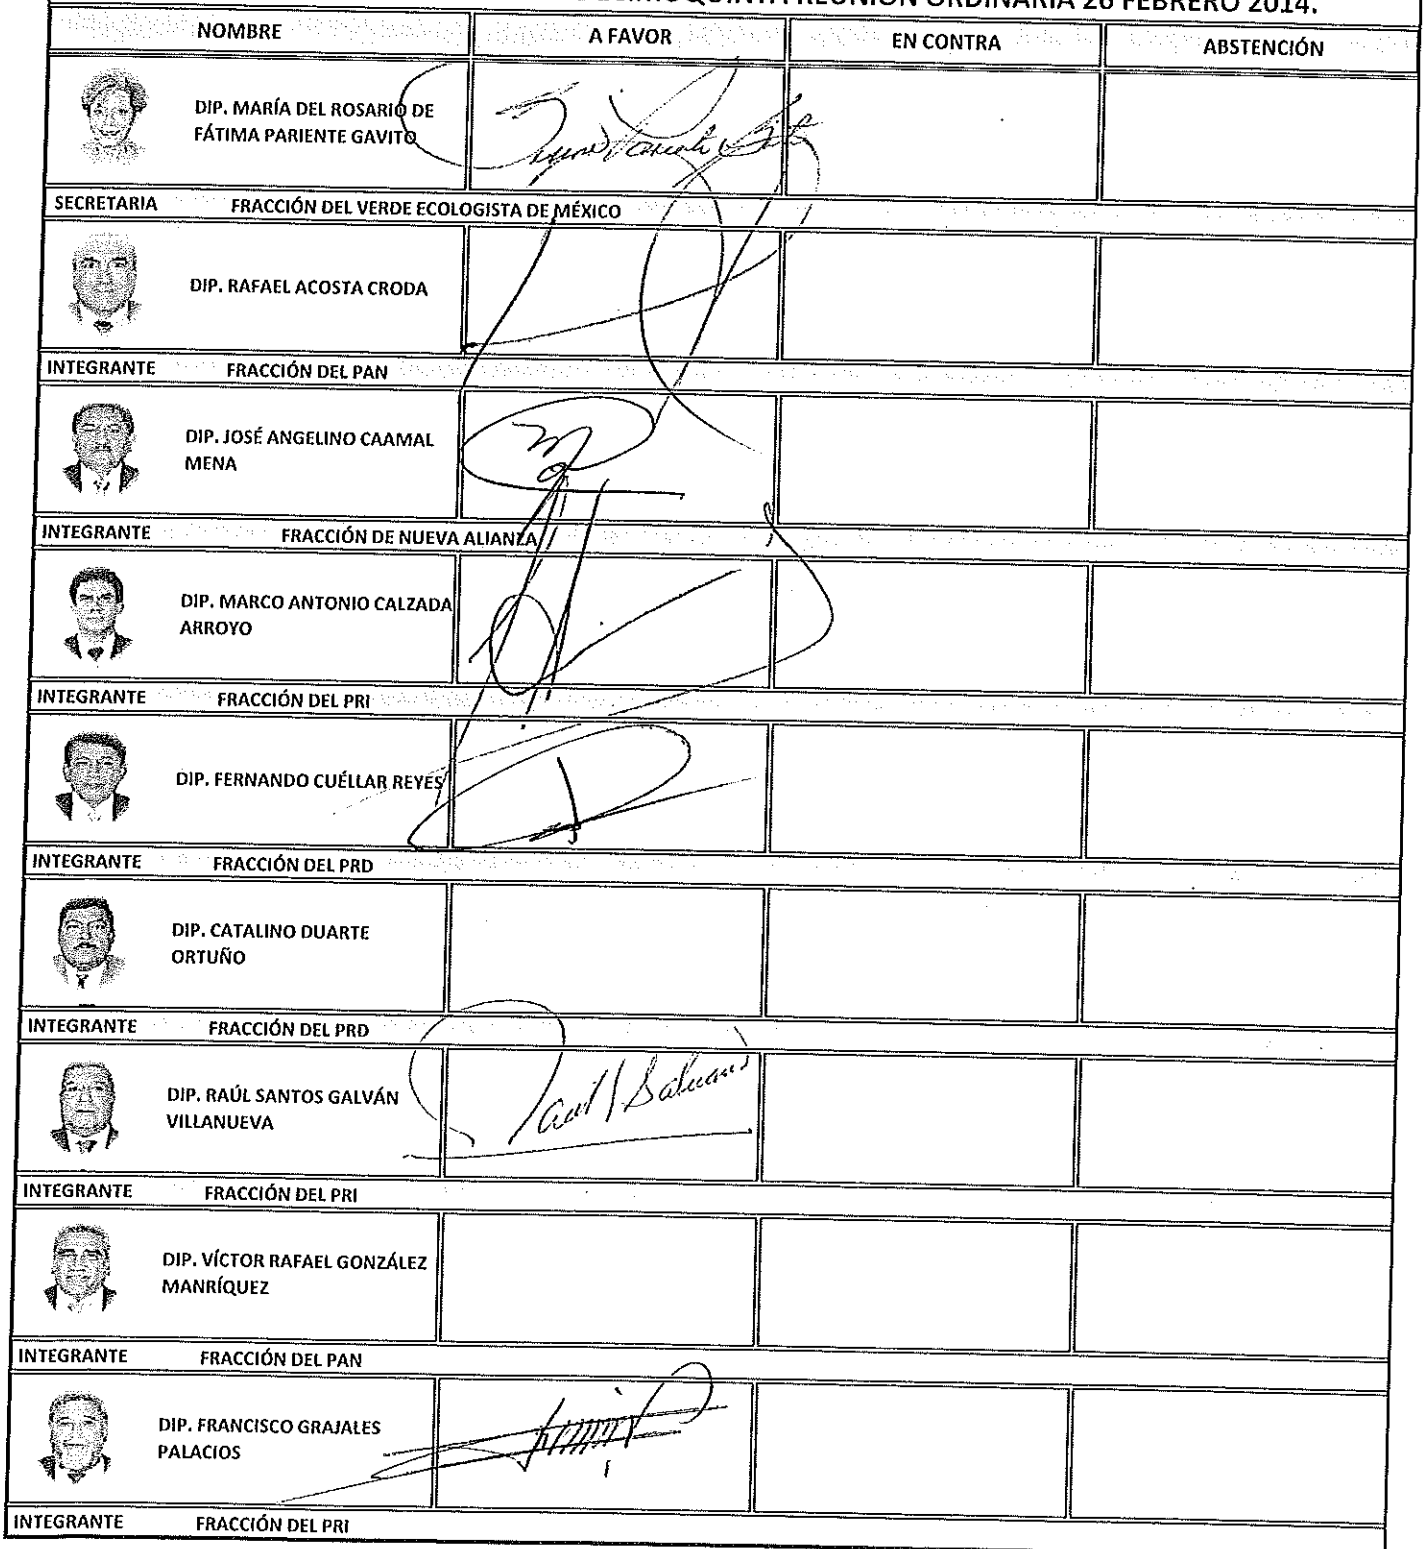 QUINTA REUNIÓN ORDINARIA 26 FEBRERO 2014.
NOMBRE A FAVOR EN CONTRA ABSTENCIÓN
DIP. MARÍA DEL ROSARIO DE
FÁTIMA PARIENTE GAVITO
SECRETARIA FRACCIÓN DEL VERDE ECOLOGISTA DE MÉXICO
DIP. RAFAEL ACOSTA CRODA
INTEGRANTE FRACCIÓN DEL PAN
DIP. JOSÉ ANGELINO CAAMAL
MENA
INTEGRANTE FRACCIÓN DE NUEVA ALIANZA
DIP. MARCO ANTONIO CALZADA
ARROYO
INTEGRANTE FRACCIÓN DEL PRI
DIP. FERNANDO CUÉLLAR REYES
INTEGRANTE FRACCIÓN DEL PRD
DIP. CATALINO DUARTE
ORTUÑO
INTEGRANTE FRACCIÓN DEL PRD
DIP. RAÚL SANTOS GALVÁN
VILLANUEVA
INTEGRANTE FRACCIÓN DEL PRI
DIP. VÍCTOR RAFAEL GONZÁLEZ
MANRÍQUEZ
INTEGRANTE FRACCIÓN DEL PAN
DIP. FRANCISCO GRAJALES
PALACIOS
INTEGRANTE FRACCIÓN DEL PRI